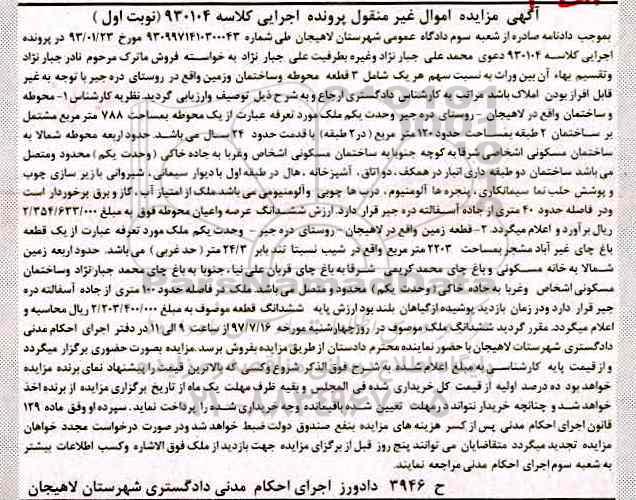 آگهی مزایده اموال غیر منقول پرونده اجرایی کلاسه ۹۳۰۱۰۴ (نوبت اول)
بموجب دادنامه صادره از شعبه سوم دادگاه عمومی شهرستان لاهیجان طی شماره ۹۳۰۹۹۷۱۴۱۰۳۰۰۰۴۳ مورخ ۹۳/۰۱/۲۳ در پرونده
اجرایی کلاسه ۹۳۰۱۰۴ دعوی محمد علی جبار نژاد وغیره بطرفیت علی جبار نژاد به خواسته فروش ماترک مرحوم نادر جبار نژاد
وتقسیم بهاء آن بین وراث به نسبت سهم هر یک شامل ۳ قطعه محوطه وساختمان وزمین واقع در روستای دره جیر با توجه به غیر
قابل افراز بودن املاک باشد مراتب به کارشناس دادگستری ارجاع و به شرح ذیل توصیف وارزیابی گردید. نظریه کارشناس ۱- محوطه
و ساختمان واقع در لاهیجان - روستای دره جیر وحدت یکم ملک مورد تعرفه عبارت از یک محوطه بمساحت ۷۸۸ متر مربع مشتمل
بر ساختمان ۲ طبقه بمساحت حدود ۱۲۰ متر مربع (در۲ طبقه) با قدمت حدود ۲۴ سال می باشد. حدود اربعه محوطه شمالا به
ساختمان مسکونی اشخاص شرقا به کوچه جنوبا به ساختمان مسکونی اشخاص وغربا به جاده خاکی (وحدت یکم) محدود ومتصل
می باشد ساختمان دو طبقه داری انبار در همکف ، دو اتاق، آشپزخانه ، هال در طبقه اول با دیوار سیمانی ، شیروانی با زیر سازی چوب
و پوشش حلب نما سیمانکاری ، پنجره ها آلومنیوم ، درب ها چوبی وآلومنیومی می باشد ملک از امتیاز آب ، گاز و برق برخوردار است
ودر فاصله حدود ۴۰ متری از جاده آسفالته دره جیر قرار دارد. ارزش ششدانگ عرصه واعیان محوطه فوق به مبلغ ۲/۳۵۴/۶۳۳/۰۰۰
ریال بر آورد و اعلام میگردد. ۲- قطعه زمین واقع در لاهیجان - روستای دره جیر - وحدت یکم ملک مورد تعرفه عبارت از یک قطعه
باغ چای غیر آباد مشجر بمساحت ۲۲۰۳ متر مربع واقع در شیب نسبتا تند بابر ۲۴/۳ متر (حد غربی) می باشد. حدود اربعه زمین
شمالا به خانه مسکونی و باغ چای محمد کریمی شرقا به باغ چای قربان علی نیا، جنوبا به باغ چای محمد جبار نژاد وساختمان
مسکونی اشخاص وغربا به جاده خاکی (وحدت یکم) محدود و متصل می باشد. ملک در فاصله حدود ۱۰۰ متری از جاده آسفالته دره
جیر قرار دارد ودر زمان بازدید پوشیده از گیاهان بلند بود ارزش پایه ششدانگ قطعه موصوف به مبلغ ۲/۲۰۳/۴۰۰/۰۰۰ ریال محاسبه و
اعلام میگردد. مقرر گردید ششدانگ ملک موصوف در روز چهارشنبه مورخه ۹۷/۷/۱۶ از ساعت ۹ الی ۱۱ در دفتر اجرای احکام مدنی
دادگستری شهرستان لاهیجان با حضور نماینده محترم دادستان از طریق مزایده بفروش برسد. مزایده بصورت حضوری برگزار میگردد
و از قیمت پایه کارشناسی به مبلغ اعلام شده به شرح فوق الذکر شروع وکسی که بالاترین قیمت را پیشنهاد نمای برنده مزایده
خواهد بود ده درصد اولیه از قیمت کل خریداری شده فی المجلس و بقیه ظرف مهلت یک ماه از تاریخ برگزاری مزایده از برنده اخذ
خواهد شد و چنانچه خریدار نتواند در مهلت تعیین شده باقیمانده وجه خریداری شده را پرداخت نماید . سپرده او وفق ماده ۱۲۹
قانون اجرای احکام مدنی پس از کسر هزینه های مزایده بنفع صندوق دولت ضبط خواهد شد ودر صورت درخواست مجدد خواهان
مزایده تجدید میگردد متقاضایان می توانند پنج روز قبل از برگزای مزایده جهت بازدید از ملک فوق الاشاره وکسب اطلاعات بیشتر
به شعبه سوم اجرای احکام مدنی مراجعه نمایند.
ح ۳۹۴۶ دادورز اجرای احکام مدنی دادگستری شهرستان لاهیجان